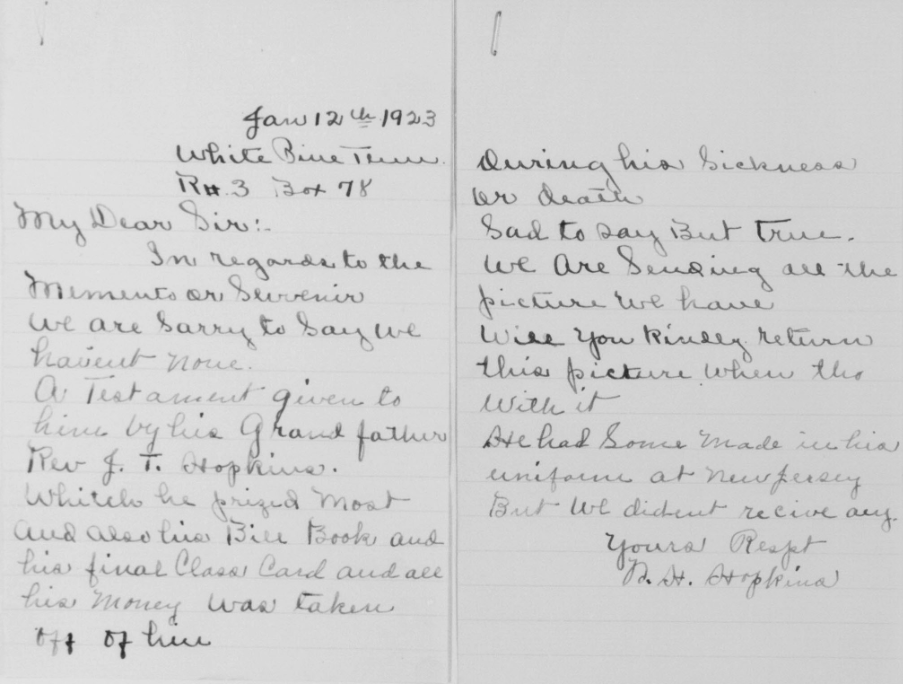 Jan 12th 1923
White Pine Tenn.
R#.3 Box 78
My Dear Sir:-
In regards to the
Memento or Suvenir
We are Sarry to Say We
havient none.
A Testament given to
him by his Grand father
Rev J. T. Hopkins.
Whitch he prized Most
And also his Bill Book and
his final Class Card and all
his Money Was taken
off of him
During his Sickness
or death
Sad to say But True.
We Are Sending all the
picture We have
Will You Kindly return
this picture When tho
With it
He had Some Made in his
uniform at New Jersey
But We dident recive any.
Yours Respt
H. Hopkins